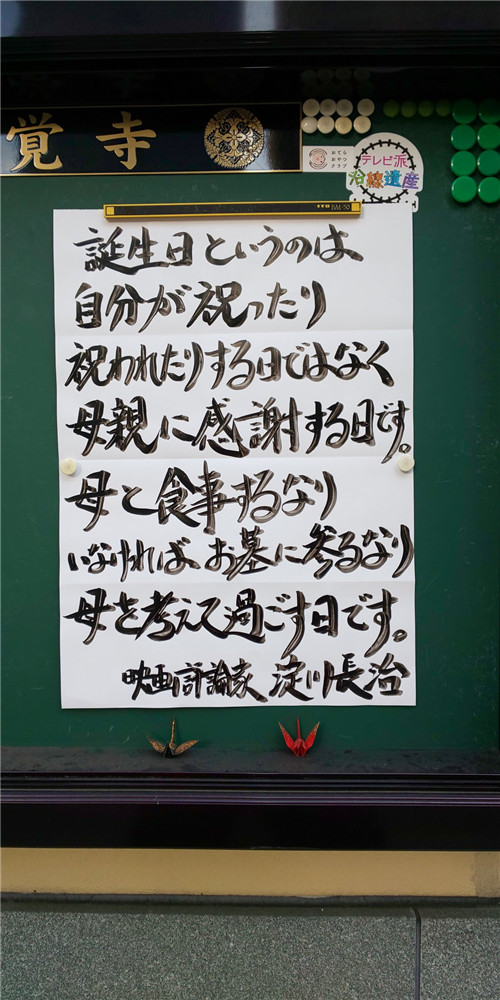 覚寺
おてら
おやつ
クラブ
テレビ派
冷線遺産
誕生日というのは、
自分が祝ったり
祝われたりする日ではなく
母親に感謝する日です。
母と食事するなり
いなければ、お墓に参るなり
母を考えて過ごす日です。
映画評論家 淀川長治